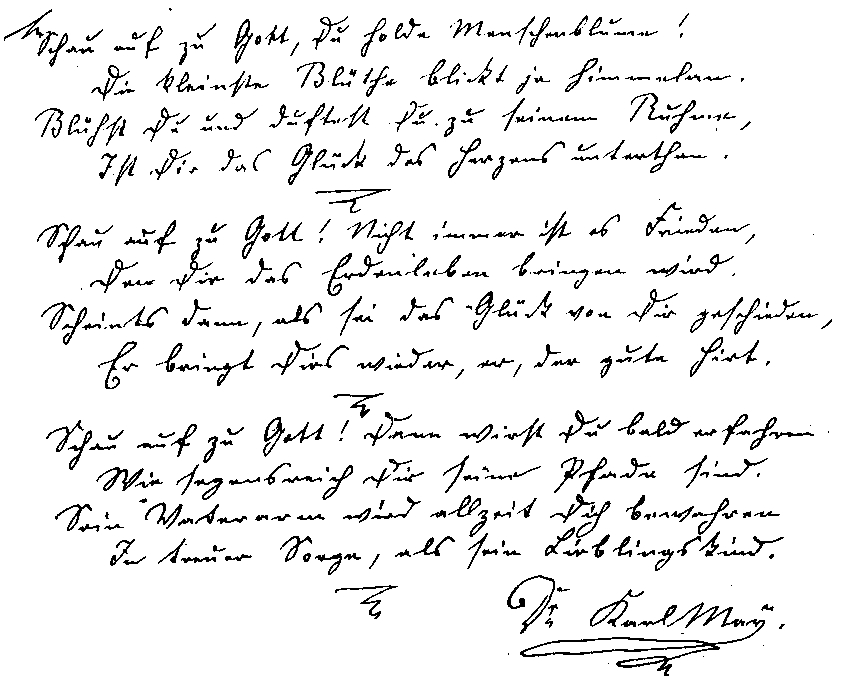 Schau auf zu Gott, Du holde Menschenblume!
Die kleinste Blüthe blickt ja himmelan.
Blühst Du und duftest Du zu seinem Ruhme,
Ist Dir das Glück des Herzens unterthan.
Schau auf zu Gott! Nicht immer ist es Frieden,
Den Dir das Erdenleben bringen wird.
Scheints dann, als sei das Glück von Dir geschieden,
Er bringt Dirs wieder, er, der gute Hirt.
Schau auf zu Gott! Dann wirst Du bald erfahren
Wie segensreich Dir seine Pfade sind.
Sein Vaterarm wird allzeit Dich bewahren
In treuer Sorge, als sein Lieblingskind.
Dr. Karl May.